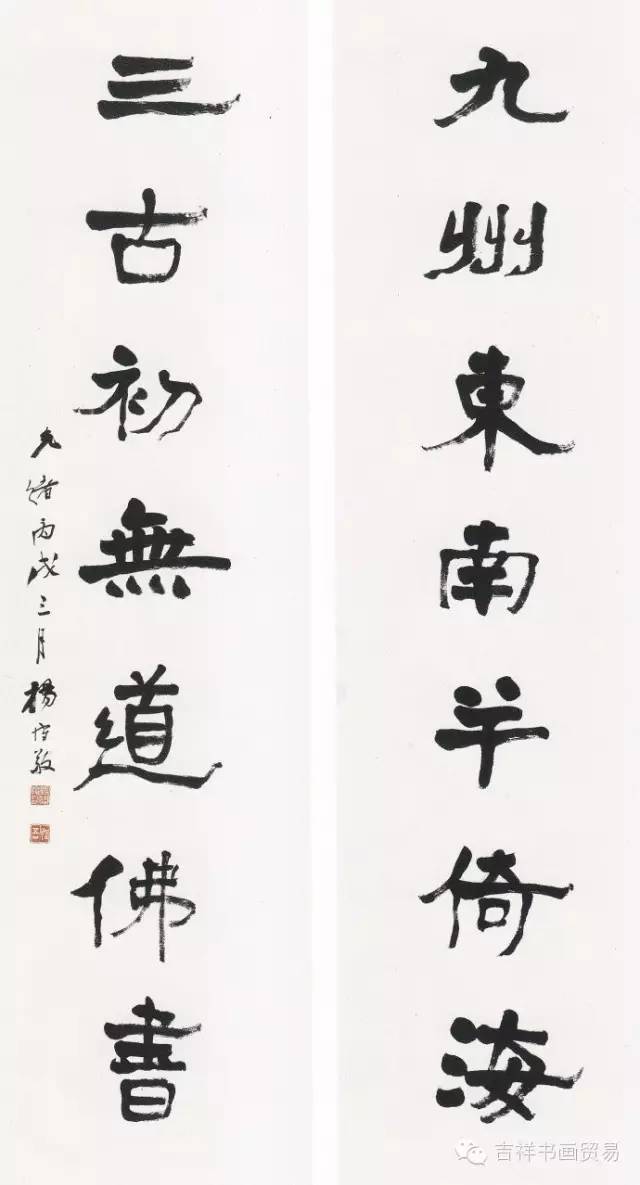 九州東南半倚海
三古初無道佛書
光緒丙戌三月楊守敬
吉祥书画贸易